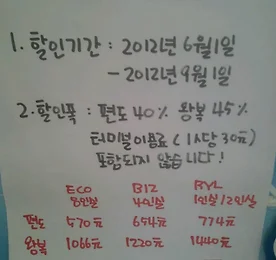 1. 할인기간 : 2012년 6월1일
- 2012년 9월1일
2. 할인폭 : 편도 40% 왕복 45%
터미널이용료 ( 1人당 30元)
포함되지 않습니다!
ECO BIZ RYL
8인실 4인실 1인실/2인실
편도 570元 654元 774元
왕복 1066元 1220元 1440元